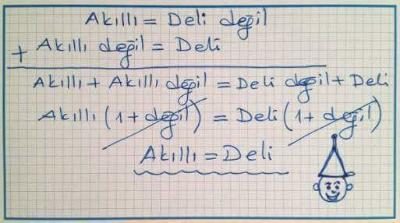 Akıllı = Deli değil
+ Akıllı değil = Deli
Akıllı + Akıllı değil = Deli değil + Deli
Akıllı (1 + değil) = Deli (1 + değil)
Akıllı = Deli